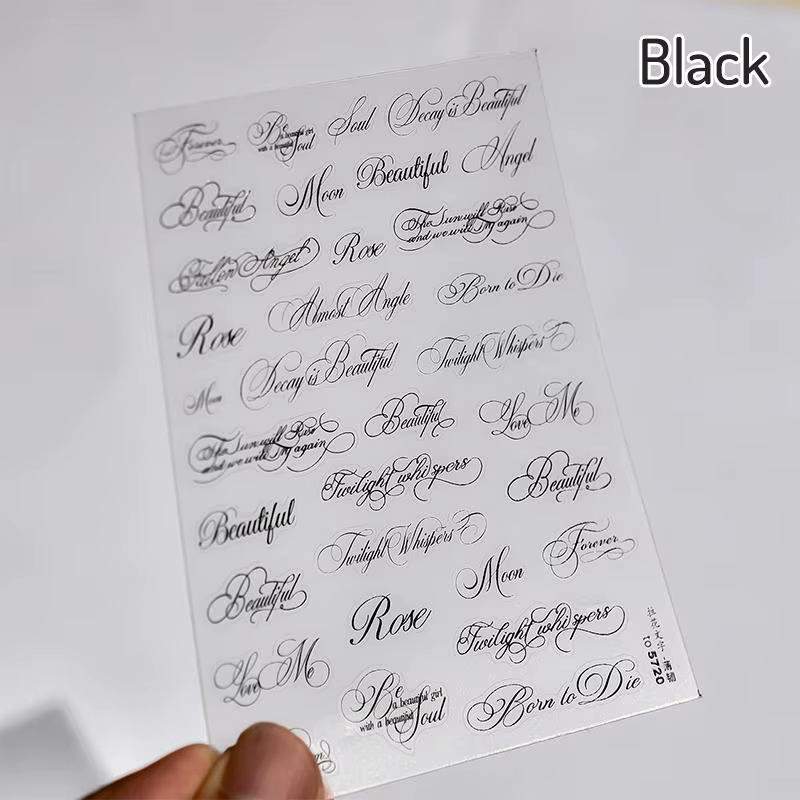 Black
Forever
Be
a beautiful girl
with a beautiful
Soul
Soul
Decay is Beautiful
Beautiful
Moon
Beautiful
Angel
Fallen Angel
Rose
The Sun will Rise
and we will try again
Rose
Almost Angle
Born to Die
Moon
Decay is Beautiful
Twilight Whispers
The Sun will Rise
and we will try again
Beautiful
Love Me
Beautiful
Twilight whispers
Beautiful
Beautiful
Twilight Whispers
Moon
Forever
Love Me
Rose
Twilight whispers
Be
a beautiful girl
with a beautiful
Soul
Born to Die
拉花文字-薄韧
TO 5720